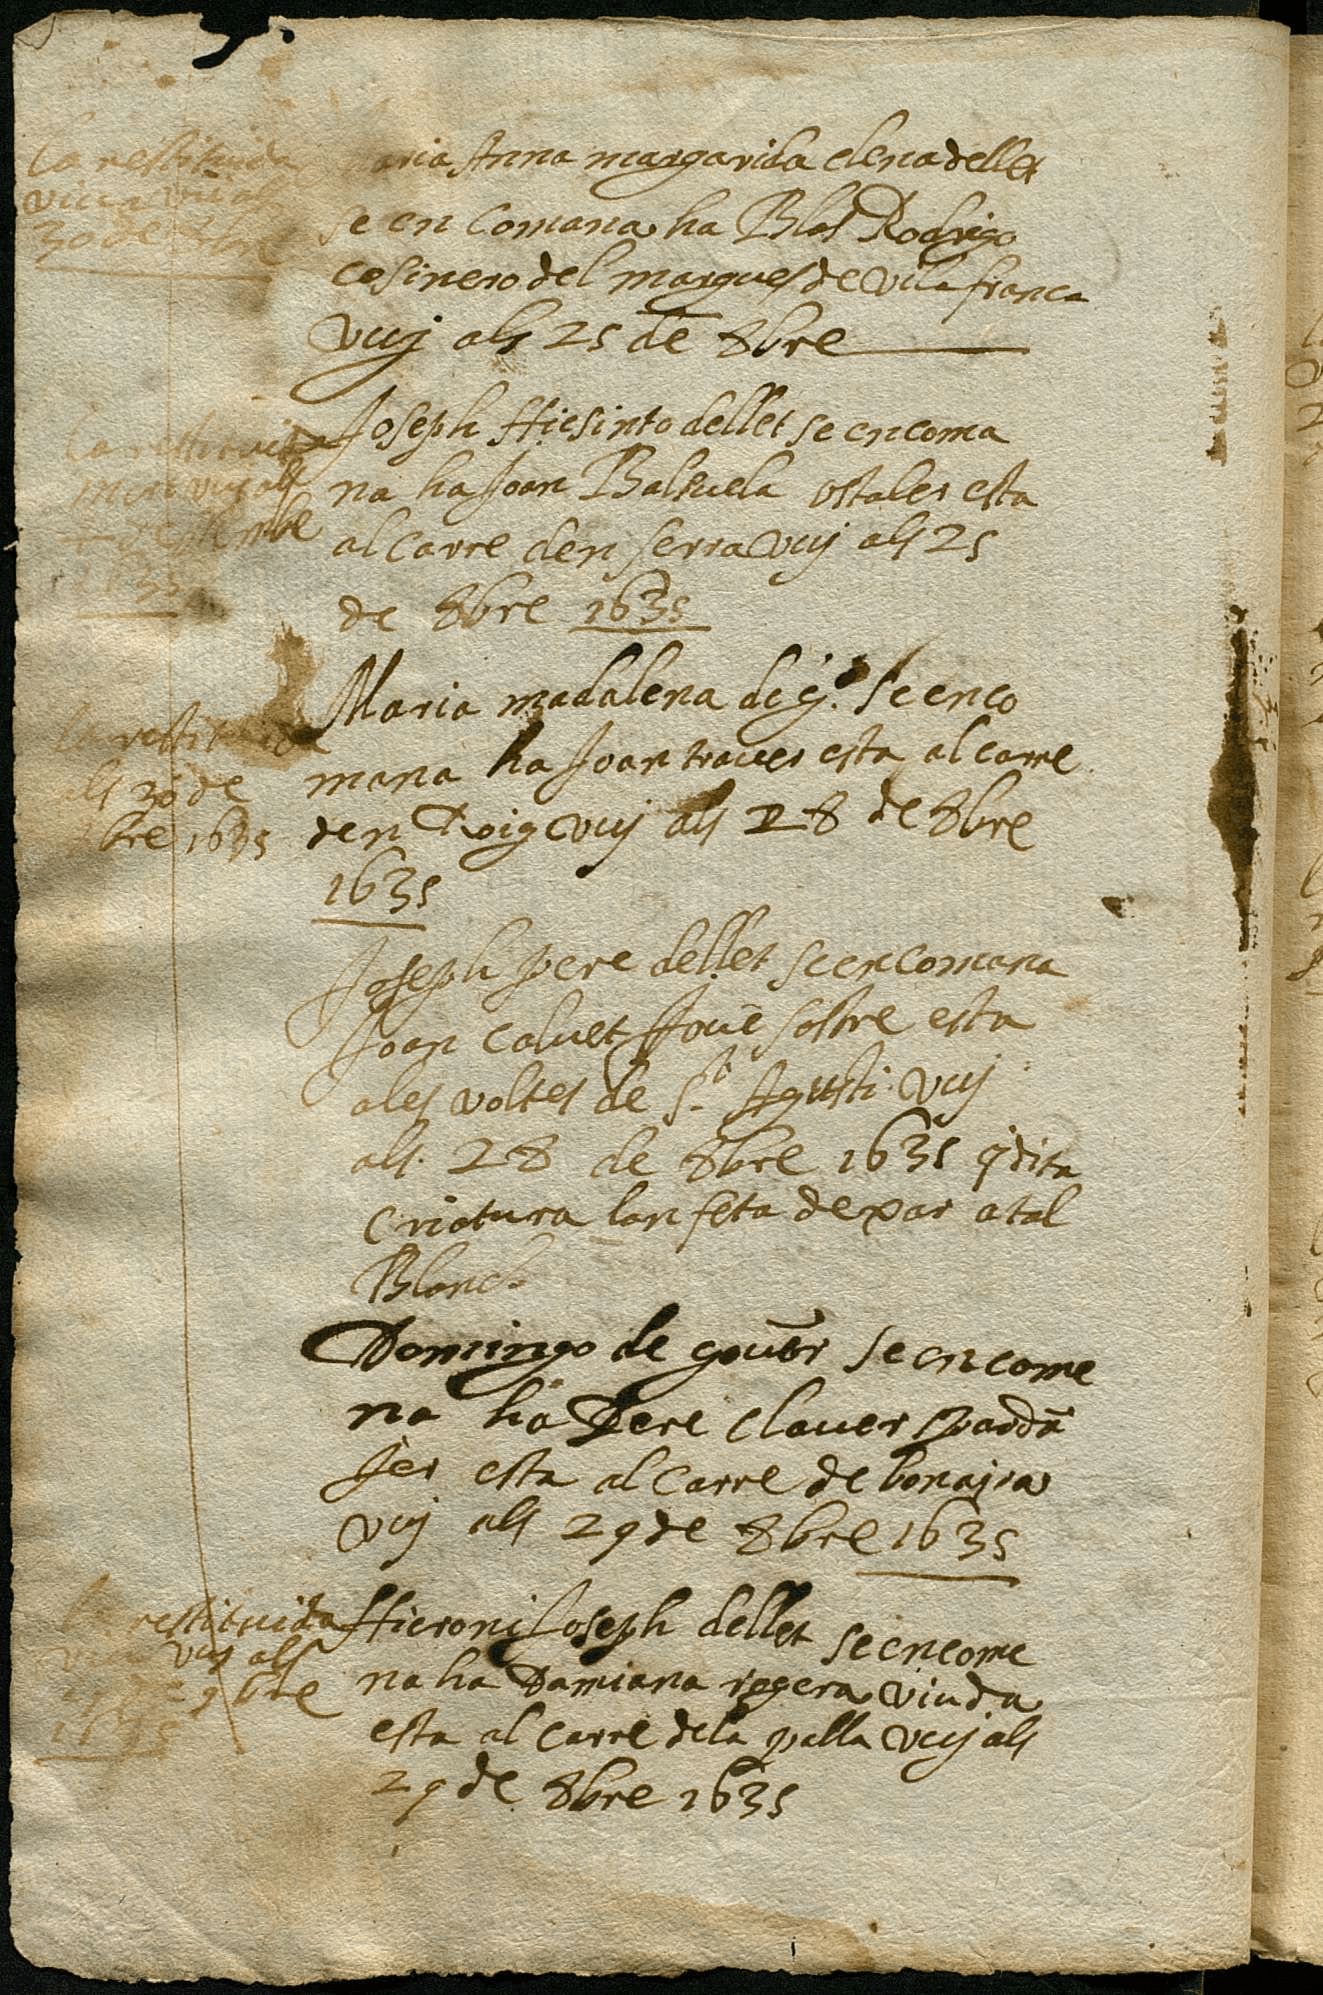 la restituida
viva vui als
30 de 8bre
Maria Anna margarida elena de llet
se en comana ha Blas Rodrigo
cosinero del marques de vilafranca
vuy als 25 de 8bre
la restituida
vuy als
1635
Joseph Hiesinto de llet se encoma
na ha Joan Balsuela ostaler esta
al carre den serra vuy als 25
de 8bre 1635
la restituida
als 30 de
8bre 1635
Maria madalena de g.r se enco
mana ha Joan traver esta al carre
den Roig vuy als 28 de 8bre
1635
Joseph pere de llet se encomana
Joan calvet Jove sastre esta
a les voltes de St Agusti vuy
als 28 de 8bre 1635 q dita
criatura lan feta dexar a tal
Blanch
Domingo de gover se encome
na ha Pere claver parda
Jer esta al carre de bonajra
vuy als 29 de 8bre 1635
la restituida
vuy als
de 9bre
1635
Hieroni Joseph de llet se encome
na ha Damiana regera viuda
esta al carre de la palla vuy als
29 de 8bre 1635